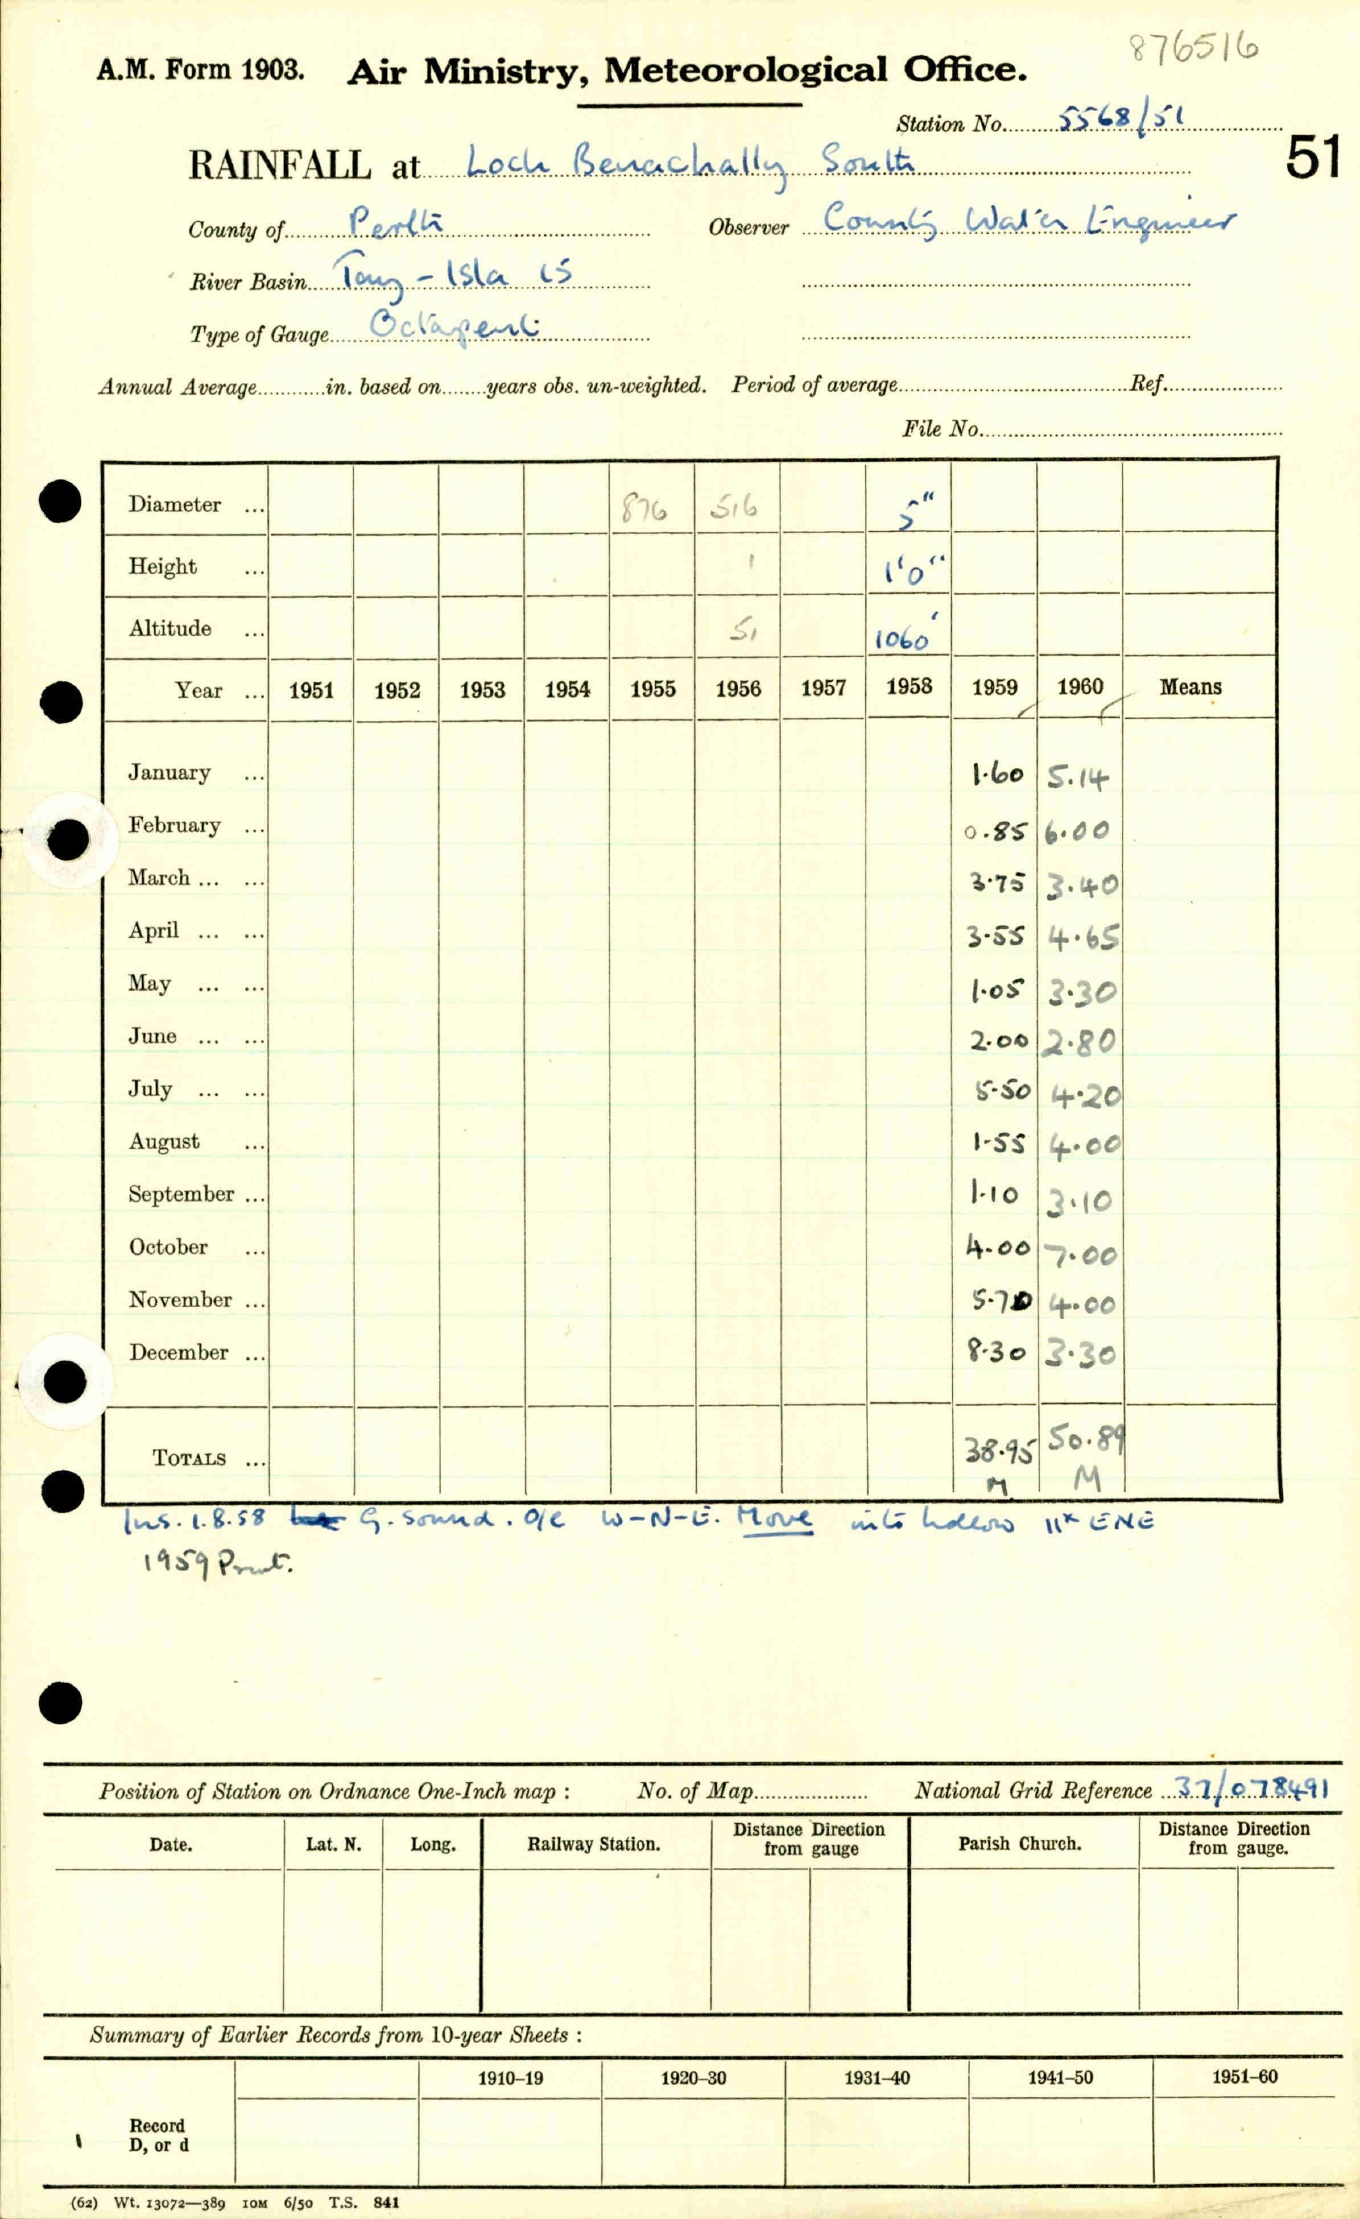 876516
A.M. Form 1903. Air Ministry, Meteorological Office.
Station No. 5568/51
51
RAINFALL at Loch Benachally South
County of Perth Observer County Water Engineer
River Basin Tay - Isla 15
Type of Gauge Octapent
Annual Average in. based on years obs. un-weighted. Period of average Ref.
File No.
Diameter ... 876 516 5"
Height ... 1 1'0"
Altitude ... 51 1060'
Year ... 1951 1952 1953 1954 1955 1956 1957 1958 1959 1960 Means
January ... 1.60 5.14
February ... 0.85 6.00
March ... ... 3.75 3.40
April ... ... 3.55 4.65
May ... ... 1.05 3.30
June ... ... 2.00 2.80
July ... ... 5.50 4.20
August ... 1.55 4.00
September ... 1.10 3.10
October ... 4.00 7.00
November ... 5.70 4.00
December ... 8.30 3.30
TOTALS ... 38.95 50.89
M M
Ins. 1.8.58 G. sound. O/e W-N-E. Move into hollow 11x ENE
1959 Print.
Position of Station on Ordnance One-Inch map : No. of Map National Grid Reference 37/078491
Date. Lat. N. Long. Railway Station. Distance Direction from gauge Parish Church. Distance Direction from gauge.
Summary of Earlier Records from 10-year Sheets :
1910–19 1920–30 1931–40 1941–50 1951–60
Record
D, or d
(62) Wt. 13072—389 10M 6/50 T.S. 841